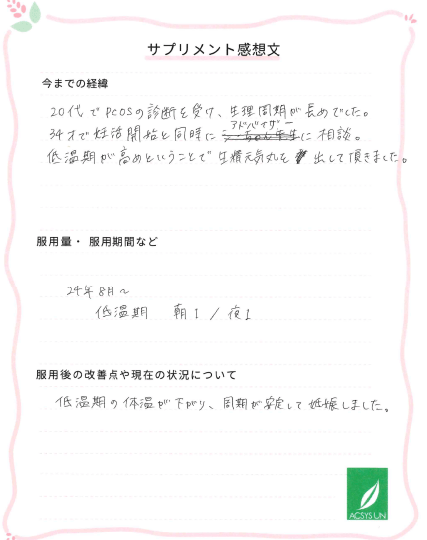 サプリメント感想文
今までの経緯
20代でPCOSの診断を受け、生理周期が長めでした。
アドバイザー
34才で妊活開始と同時に に相談。
低温期が高めということで生精元気丸を出して頂きました。
服用量・服用期間など
24年8月〜
低温期 朝1/夜1
服用後の改善点や現在の状況について
低温期の体温が下がり、周期が安定して妊娠しました。
ACSYS UN